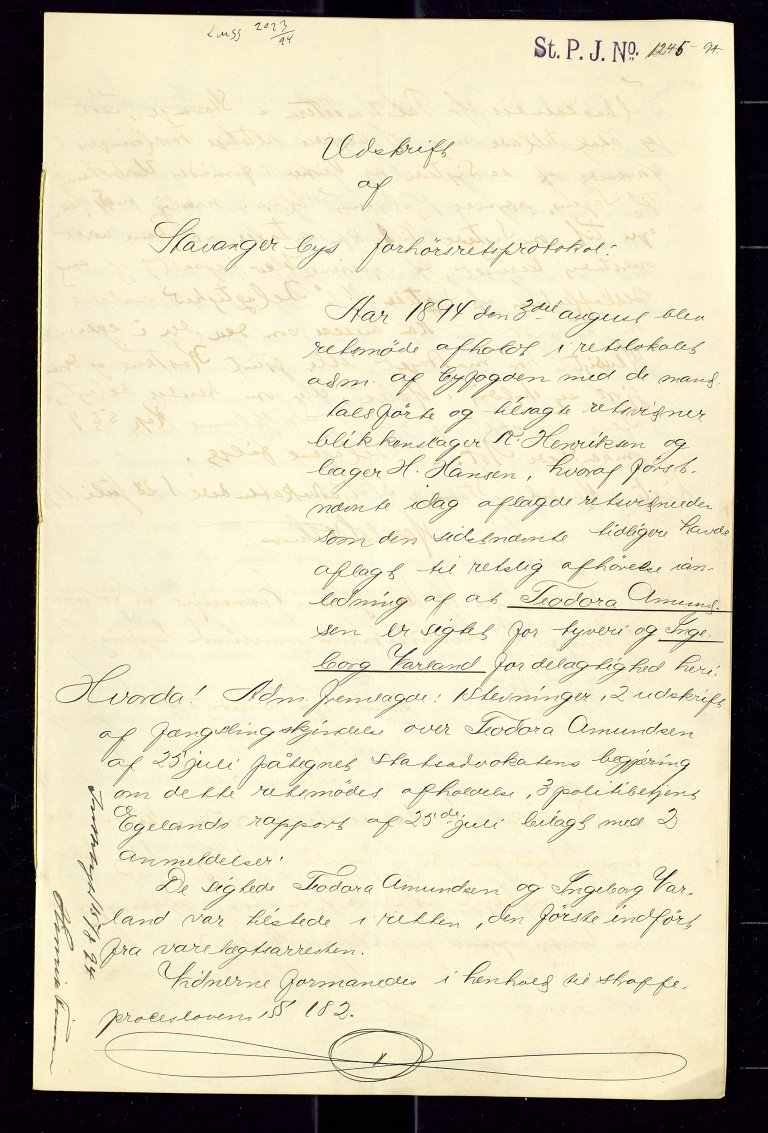 2023/94
St. P. J. No. 1245 - 94
Udskrift
af
Stavanger bys forhørsretsprotokol:
Aar 1894 den 3die august blev
retsmøde afholdt i retslokalet
adm. af byfogden med de mand-
talsførte og tilsagte retsvidner
blikkenslager K. Henriksen og
bager H. Hansen, hvoraf først-
nævnte idag aflagde retsvidneeden
som den sidstnævnte tidligere havde
aflagt til retslig afhørelse ian-
ledning af at Teodora Amund-
sen er sigtet for tyveri og Inge-
borg Varland for delagtighed heri.
Hvorda! Adm. fremlagde: 1 stevninger, 2 udskrift
af fængslingskjendelse over Teodora Amundsen
af 25 juli påtegnet statsadvokatens begjæring
om dette retsmødes afholdelse, 3 politibetjent
Egelands rapport af 25de juli bilagt med 2
anmeldelser.
De sigtede Teodora Amundsen og Ingeborg Var-
land var tilstede i retten, den første indført
fra varetægtsarresten.
Vidnerne formanedes i henhold til straffe-
proceslovens § 182.